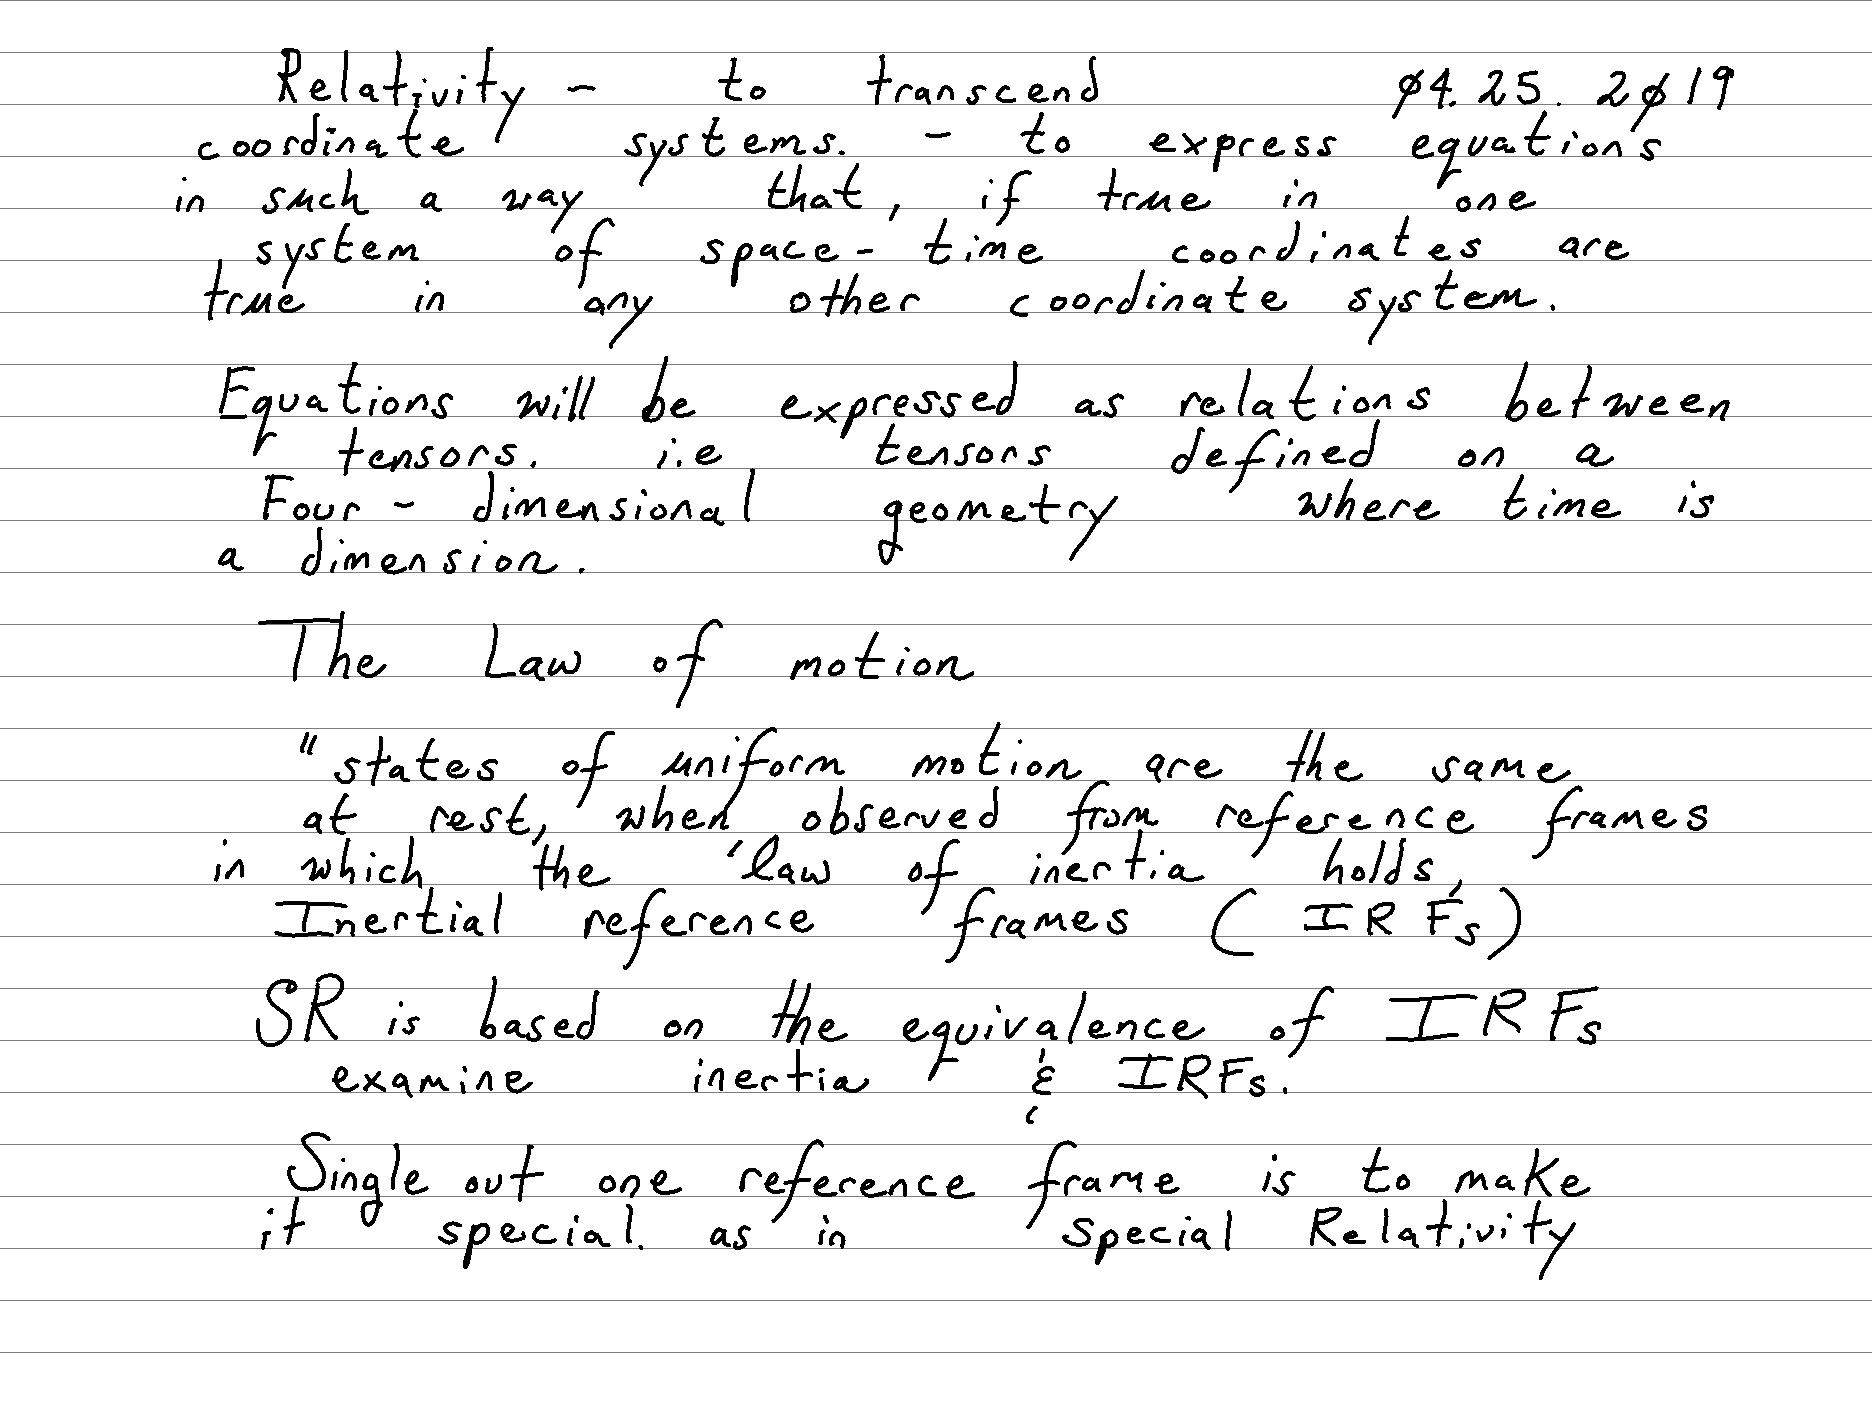 Relativity - to transcend ø4.25.2ø19
coordinate systems. - to express equations
in such a way that, if true in one
system of space-time coordinates are
true in any other coordinate system.
Equations will be expressed as relations between
tensors. i.e tensors defined on a
Four-dimensional geometry where time is
a dimension.
The Law of motion
"states of uniform motion are the same
at rest, when observed from reference frames
in which the 'law of inertia holds,
Inertial reference frames (IRF's)
SR is based on the equivalence of IRFs
examine inertia & IRFs.
Single out one reference frame is to make
it special. as in Special Relativity